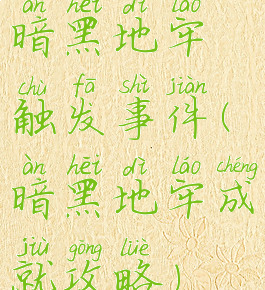 àn hēi dì láo
暗黑地牢
chù fā shì jiàn
触发事件(
àn hēi dì láo chéng
暗黑地牢成
jiù gōng lüè
就攻略)